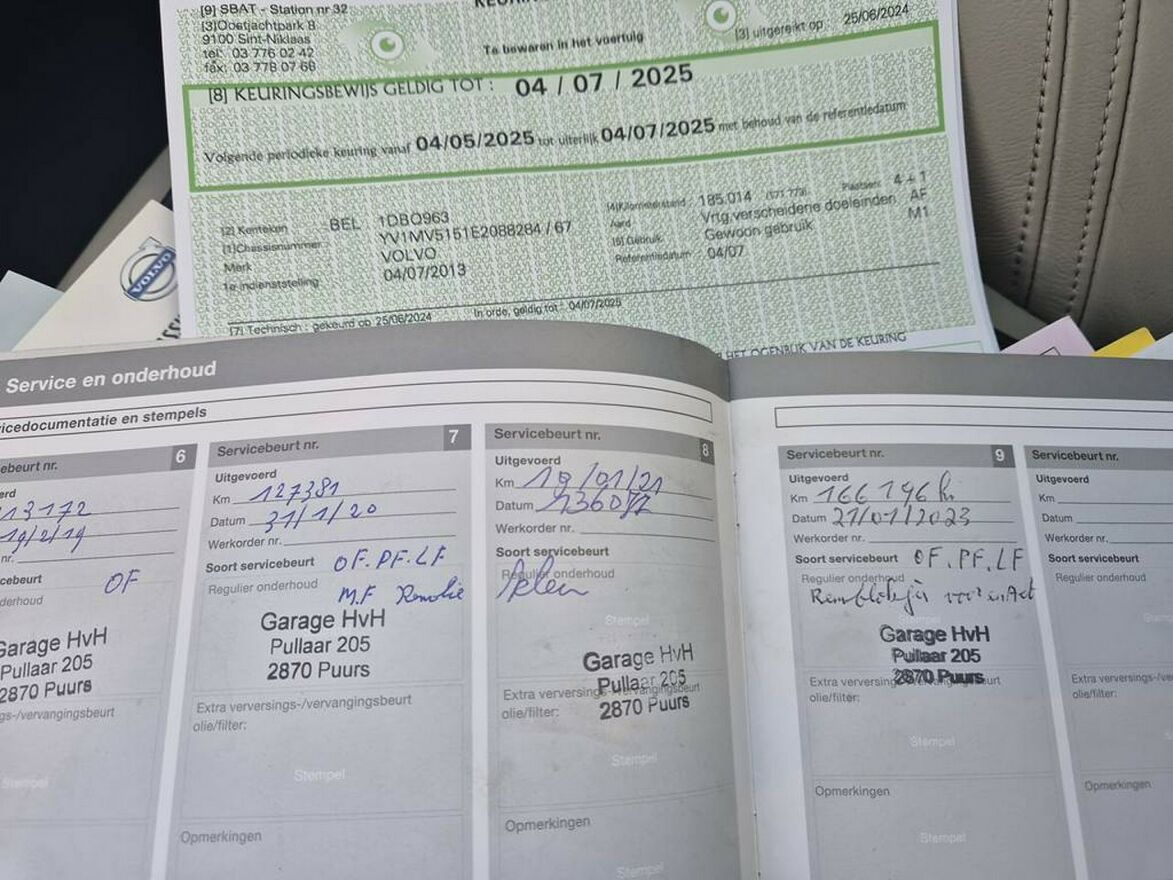 [9] SBAT - Station nr 32
[3]Oostjachtpark 8
9100 Sint-Niklaas
tel: 03 776 02 42
fax: 03 778 07 66
Te bewaren in het voertuig
[3] uitgereikt op 25/06/2024
[8] KEURINGSBEWIJS GELDIG TOT : 04 / 07 / 2025
Volgende periodieke keuring vanaf 04/05/2025 tot uiterlijk 04/07/2025 met behoud van de referentiedatum
[2] Kenteken BEL 1DBQ963
[1]Chassisnummer YV1MV5151E2088284 / 67
Merk VOLVO
1e indienststelling 04/07/2013
[4]Kilometerstand 185.014 (171 773) Plaatsen 4 + 1
Aard Vrtg.verscheidene doeleinden AF
[5] Gebruik Gewoon gebruik M1
Referentiedatum 04/07
[7] Technisch : gekeurd op 25/06/2024 In orde, geldig tot : 04/07/2025
HET OGENBLIK VAN DE KEURING
VOLVO
Service en onderhoud
icedocumentatie en stempels
ebeurt nr. 6
erd
13172
19/2/19
nr.
cebeurt OF
derhoud
Garage HvH
Pullaar 205
2870 Puurs
gs-/vervangingsbeurt
Stempel
Servicebeurt nr. 7
Uitgevoerd
Km 127381
Datum 31/1/20
Werkorder nr.
Soort servicebeurt OF.PF.LF
Regulier onderhoud M.F
Garage HvH
Pullaar 205
2870 Puurs
Extra verversings-/vervangingsbeurt
olie/filter:
Stempel
Opmerkingen
Servicebeurt nr. 8
Uitgevoerd
Km 19/01/21
Datum
Werkorder nr.
Soort servicebeurt
Regulier onderhoud
Stempel
Garage HvH
Pullaar 205
2870 Puurs
Extra verversings-/vervangingsbeurt
olie/filter:
Stempel
Opmerkingen
Stempel
Servicebeurt nr. 9
Uitgevoerd
Km 166196
Datum 21/01/2023
Werkorder nr.
Soort servicebeurt OF.PF.LF
Regulier onderhoud
Garage HvH
Pullaar 205
2870 Puurs
Extra verversings-/vervangingsbeurt
olie/filter:
Stempel
Opmerkingen
Stempel
Servicebeurt nr.
Uitgevoerd
Km
Datum
Werkorder nr.
Soort servicebeurt
Regulier onderhoud
Extra verversings-/
olie/filter:
Opmerkingen